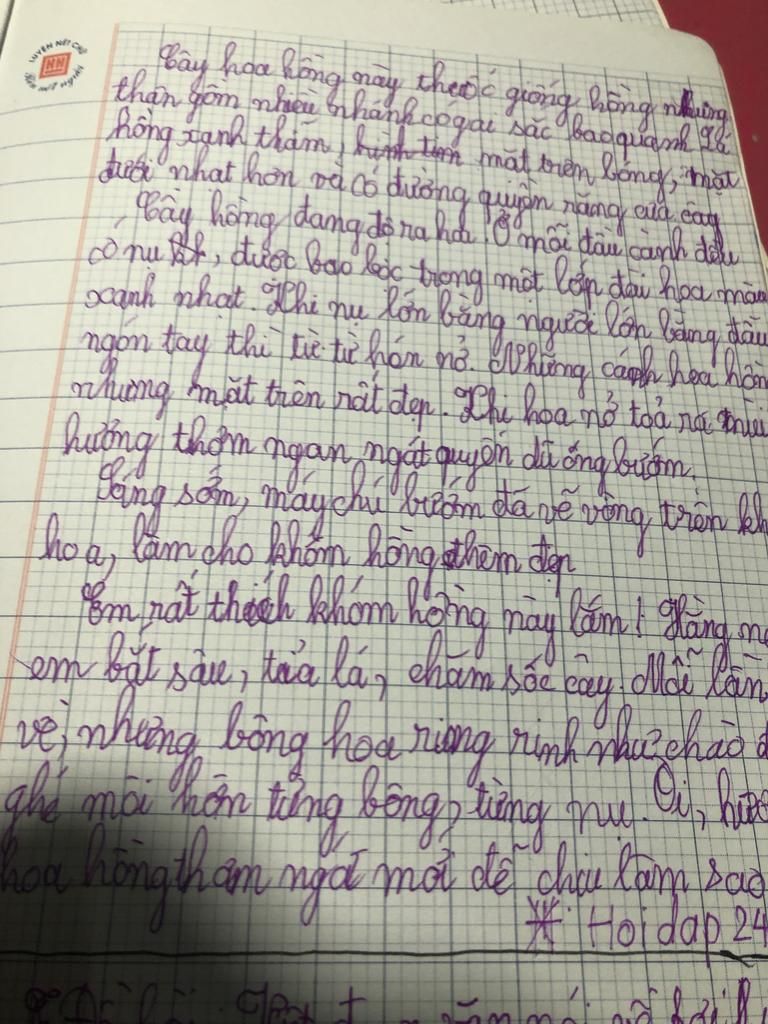 LUYỆN NÉT CHỮ
Cây hoa hồng này thuộc giống hồng nhung
thân gồm nhiều nhánh có gai sắc bao quanh. Lá
hồng xanh thẫm, hình tim mặt trên bóng, mặt
dưới nhạt hơn và có đường quyện răng cưa cay
Cây hồng đang độ ra hoa. Ở mỗi đầu cành đều
có nụ, được bao bọc trong một lớp đài hoa màu
xanh nhạt. Khi nụ lớn bằng người lớn bằng đầu
ngón tay thì từ từ hón nở. Những cánh hoa hồn
nhung mặt trên rất đẹp. Khi hoa nở toả ra mùi
hương thơm ngan ngát quyến dũ ong bướm.
Sáng sớm, mấy chú bướm đã vẽ vòng trên kh
hoa, làm cho khóm hồng thêm đẹp
Em rất thích khóm hồng này lắm! Hằng ng
em bắt sâu, tỉa lá, chăm sóc cây. Mỗi lần
về, những bông hoa rung rinh như chào đ
ghé môi hôn từng bông, từng nụ. Ôi, hươ
hoa hồng thơm ngát mới dễ chịu làm sao
* Hoidap 24